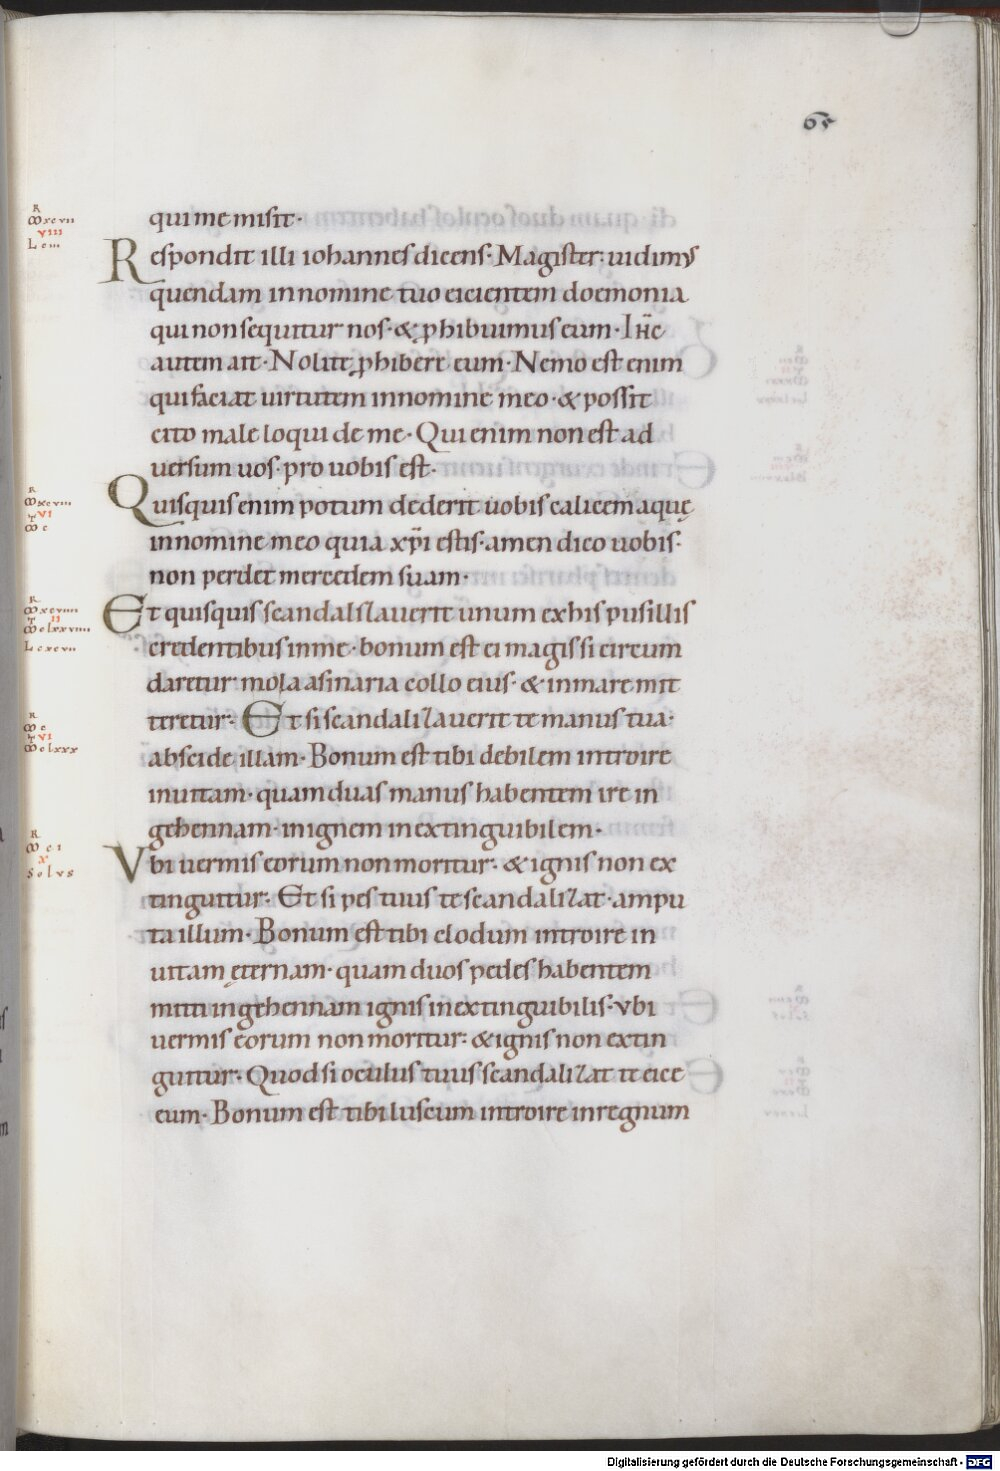 65
qui me misit·
Respondit illi iohannes dicens· Magister: uidimus
quendam in nomine tuo eicientem doemonia
qui non sequitur nos· & ꝓhibuimus eum· Ihc̄
autem ait· Nolite ꝓhibere eum· Nemo est enim
qui faciat uirtutem in nomine meo· & possit
cito male loqui de me· Qui enim non est ad
uersum uos· pro uobis est·
Quisquis enim potum dederit uobis calicem aquę
in nomine meo quia xp̄i estis· amen dico uobis·
non perdet mercedem suam·
Et quisquis scandalizauerit unum ex his pusillis
credentibus in me· bonum est ei magis si circum
daretur mola asinaria collo eius· & in mare mit
teretur· Et si scandalizauerit te manus tua·
abscide illam· Bonum est tibi debilem introire
in uitam· quam duas manus habentem ire in
gehennam· in ignem inextinguibilem·
Vbi uermis eorum non moritur· & ignis non ex
tinguitur· Et si pes tuus te scandalizat· ampu
ta illum· Bonum est tibi clodum introire in
uitam ęternam· quam duos pedes habentem
mitti in gehennam ignis inextinguibilis· vbi
uermis eorum non moritur: & ignis non extin
guitur· Quod si oculus tuus scandalizat te eice
eum· Bonum est tibi luscum introire in regnum
R
xcvii
VIII
L ciii
R
xcviii
VI
c
R
xcviiii
II
clxxviiii
L cxcvii
R
c
VI
clxxx
R
ci
X
solus
Digitalisierung gefördert durch die Deutsche Forschungsgemeinschaft - DFG